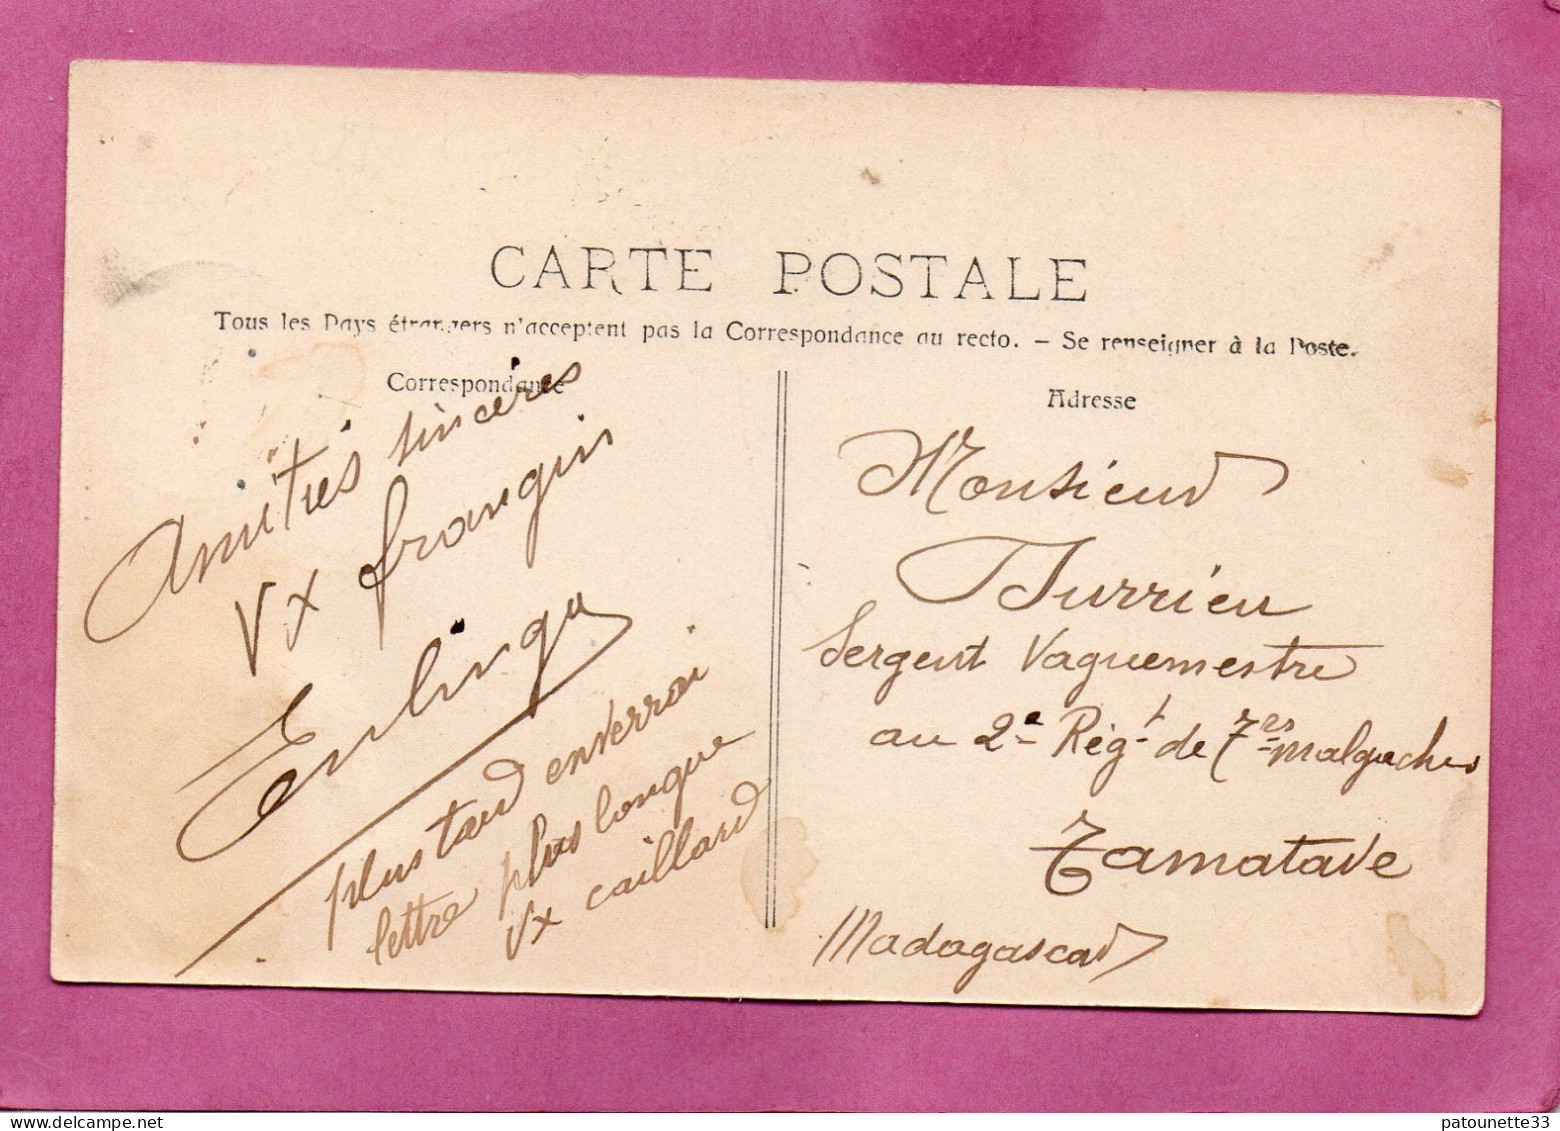 CARTE POSTALE
Tous les Pays étrangers n'acceptent pas la Correspondance au recto. – Se renseigner à la Poste.
Correspondance
Amitiés sincères
Vx frangin
plus tard enverrai
lettre plus longue
Vx caillard
Adresse
Monsieur
Sergent Vaguemestre
au 2e Régt de Tres malgaches
Tamatave
Madagascar
www.delcampe.net
patounette33